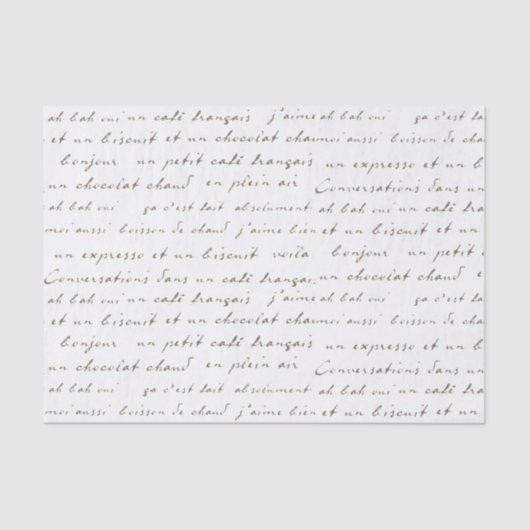 ah bah oui un café français j'aime ah bah oui ça c'est fait
et un biscuit et un chocolat chau moi aussi boisson de cha
bonjour un petit café français un expresso et un b
un chocolat chaud en plein air Conversations dans un
ah bah oui ça c'est fait absolument ah bah oui un café fra
moi aussi boisson de chaud j'aime bien et un biscuit et un
un expresso et un biscuit voila bonjour un petit c
Conversations dans un café françai un chocolat chaud e
ah bah oui un café français j'aime ah bah oui ça c'est fai
et un biscuit et un chocolat chau moi aussi boisson de cha
bonjour un petit café français un expresso et un b
un chocolat chaud en plein air Conversations dans un
ah bah oui ça c'est fait absolument ah bah oui un café fra
moi aussi boisson de chaud j'aime bien et un biscuit et un